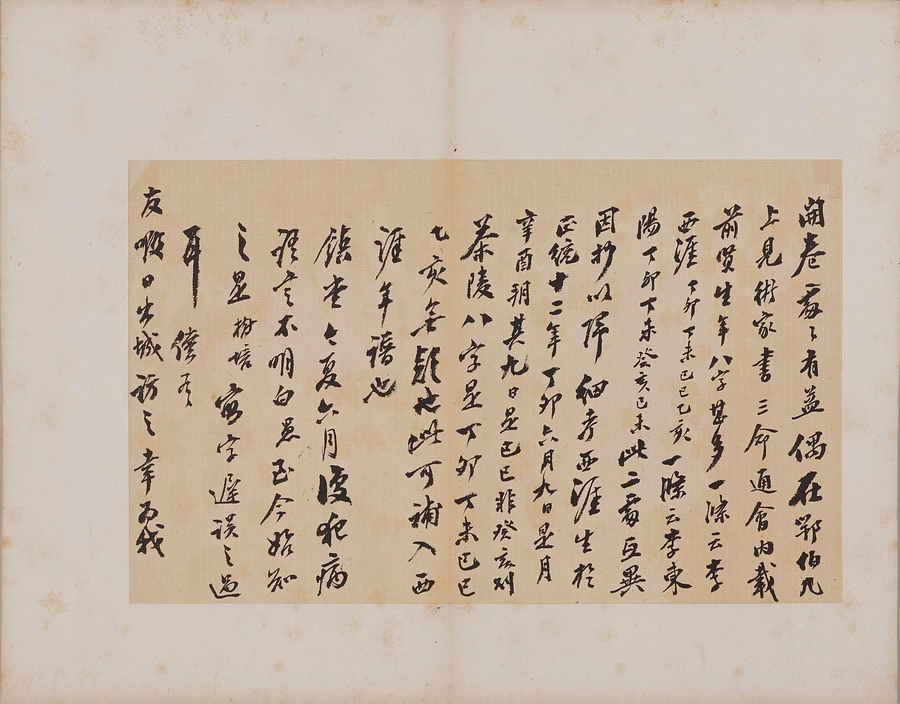 開卷處處有益偶在鄂伯几
上見術家書三命通會內載
前賢生年八字甚多一條云李
西涯丁卯丁未己巳乙亥一條云李東
陽丁卯丁未癸亥己未此二處互異
因抄以歸細考西涯生於
正統十二年丁卯六月九日是月
辛酉朔其九日是己巳非癸亥則
茶陵八字是丁卯丁未己巳
乙亥無疑也此可補入西
涯年譜也
鎮堂今夏六月復犯病
語言不明白愚至今始知
之是樹培寫字遲誤之過
耳
友 日出城訪之幸為我